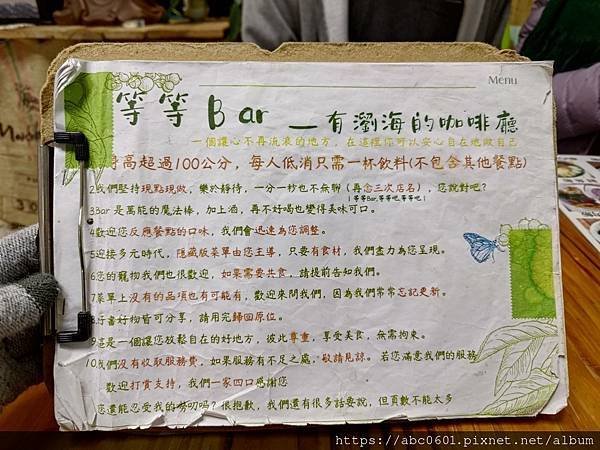 Menu
等等 Bar — 有瀏海的咖啡廳
一個讓心不再流浪的地方, 在這裡你可以安心自在地做自己
高超過100公分, 每人低消只需一杯飲料(不包含其他餐點)
2.我們堅持現點現做, 樂於靜待, 一分一秒也不無聊 (再念三次店名), 您說對吧?
(等等Bar,等等吧,等等吧)
3.Bar 是萬能的魔法棒, 加上酒, 再不好喝也變得美味可口。
4.歡迎您反應餐點的口味, 我們會迅速為您調整。
5.迎接多元時代, 隱藏版菜單由您主導, 只要有食材, 我們盡力為您呈現。
6.您的寵物我們也很歡迎, 如果需要共食, 請提前告知我們。
7.菜單上沒有的品項也有可能有, 歡迎來問我們, 因為我們常常忘記更新。
8.好書好物皆可分享, 請用完歸回原位。
9.這是一個讓您放鬆自在的好地方, 彼此尊重, 享受美食, 無需拘束。
10.我們沒有收取服務費, 如果服務有不足之處, 敬請見諒。若您滿意我們的服務
歡迎打賞支持, 我們一家四口感謝您
您還能忍受我的嘮叨嗎? 很抱歉, 我們還有很多話要說, 但頁數不能太多
https://abc0601.pixnet.net/album